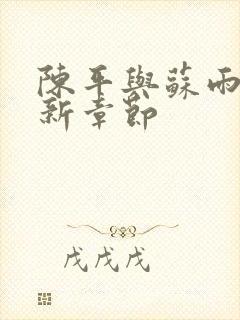 陳平與蘇雨
新章節
戊戌戊